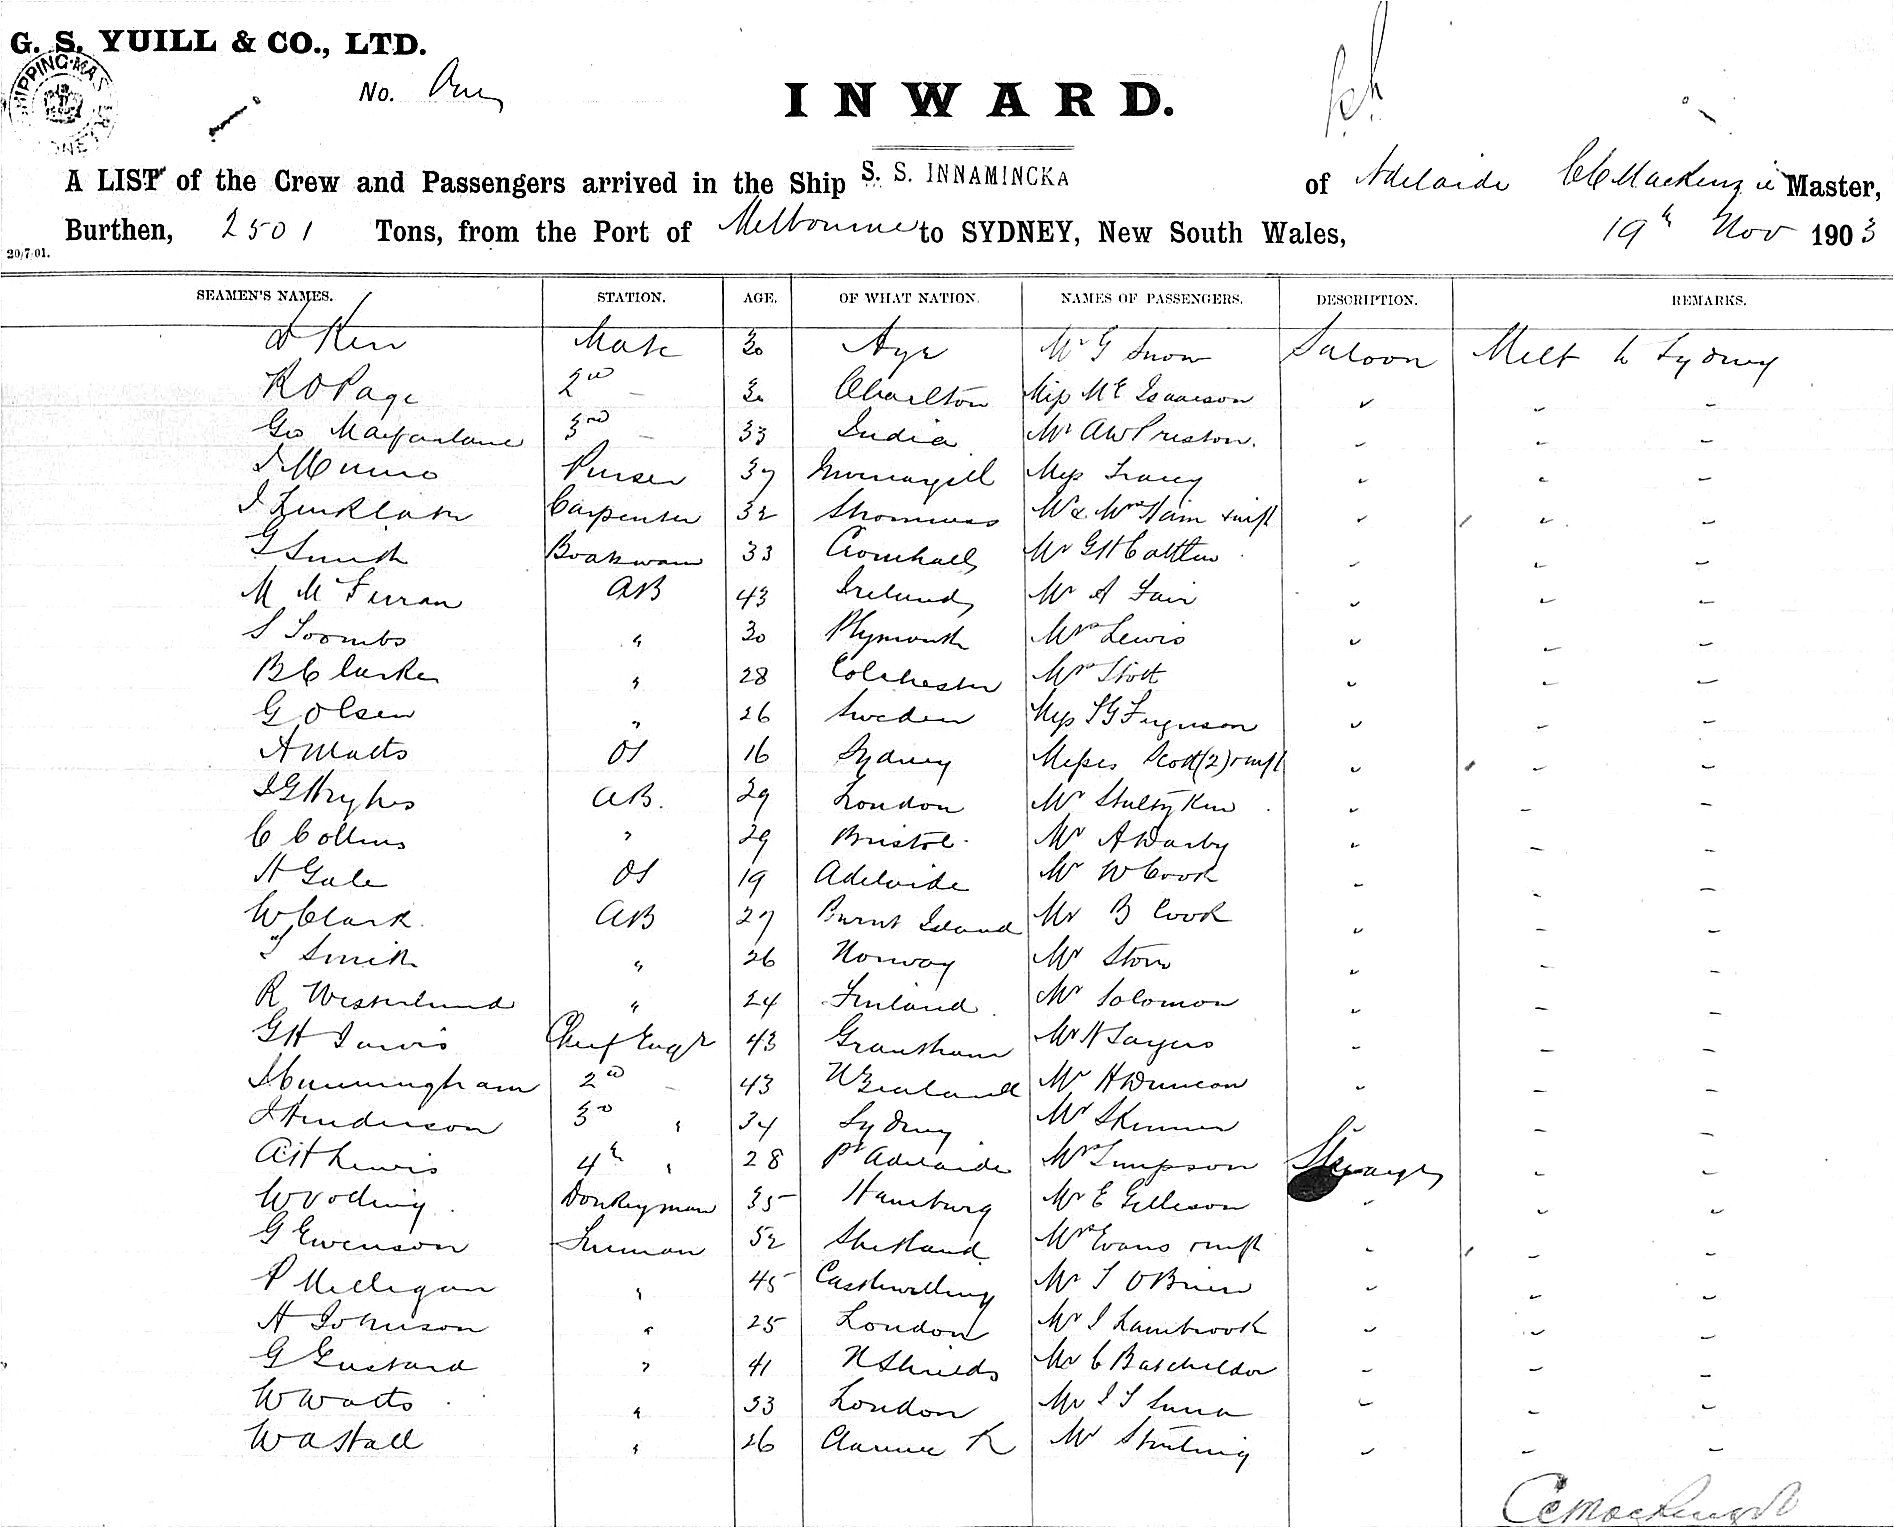 G. S. YUILL & CO., LTD.
No. One
INWARD.
A LIST of the Crew and Passengers arrived in the Ship S. S. INNAMINCKA of Adelaide CC Mackenzie Master,
Burthen, 2501 Tons, from the Port of Melbourne to SYDNEY, New South Wales, 19th Nov 1903
20/7/01.
SEAMEN'S NAMES. STATION. AGE. OF WHAT NATION. NAMES OF PASSENGERS. DESCRIPTION. REMARKS.
Kerr Mate 30 Ayr Mr G Snow Saloon Melb to Sydney
R O Page 2nd - 30 Charlton Miss M E Isaacson
Geo Macfarlane 3rd - 33 India Mr A W Preston.
J Munro Purser 37 Invercargill Miss Tracey
J Carpenter 32 Stromness Mr & Mrs
G Smith Boatswain 33 Mr G H
M McFerran AB 43 Ireland Mr A Fair
S Toombs " 30 Plymouth Mrs Lewis
B Clarke " 28 Colchester Mr Stott
G Olsen " 26 Sweden Miss Ferguson
A Watts OS 16 Sydney Misses Scott (2)
J G Hughes AB. 29 London Mr
C Collins " 29 Bristol. Mr A Darby
H Gale OS 19 Adelaide Mr W Cook
W Clark. AB 27 Burnt Island Mr B Cook
T Smith " 26 Norway Mr
R Westerlund " 24 Finland Mr Solomon
G H Jarvis Chief Engr 43 Grantham Mr H Sayers
J Cunningham 2nd - 43 N Zealand Mr H Duncan
J Henderson 3rd " 34 Sydney Mr Skinner
A H Lewis 4th " 28 Pt Adelaide Mrs Simpson Steerage
Donkeyman 35 Hamburg Mr E
G Ewenson Fireman 52 Shetland Mrs Evans
P Milligan " 45 Castlewellan Mr T O'Brien
H Johnson " 25 London Mr J Lambrook
G Gustard " 41 N Shields Mr C Batcheldor
W Watts " 33 London Mr
W A Hall " 26 Clarence R Mr Stirling